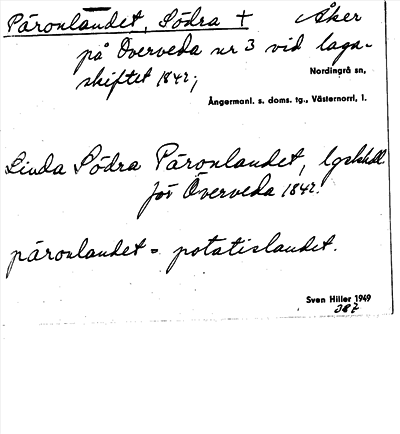 Päronlandet, Södra + Åker
på Överveda nr 3 vid laga-
skiftet 1842;
Nordingrå sn,
Ångermanl. s. doms. tg., Västernorrl, l.
Linda Södra Päronlandet, lgskhdl
för Överveda 1842.
päronlandet = potatislandet.
Sven Hiller 1949
387